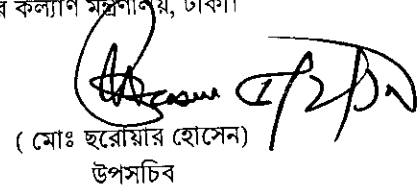 র কল্যাণ মন্ত্রণালয়, ঢাকা।
( মোঃ ছরোয়ার হোসেন)
উপসচিব